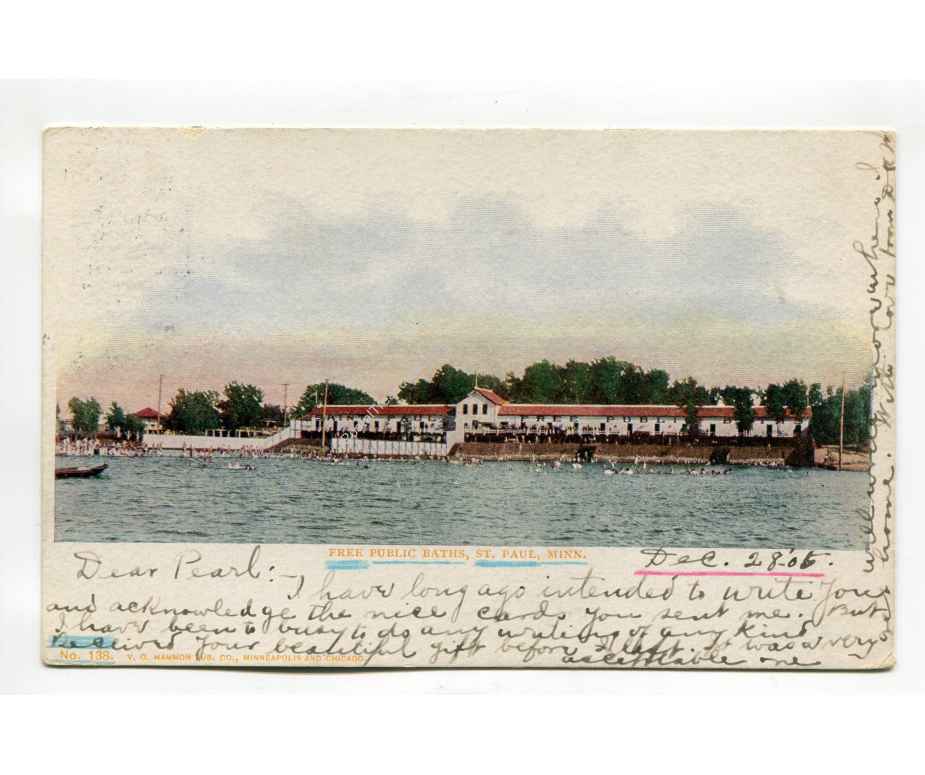 FREE PUBLIC BATHS, ST. PAUL, MINN.
Dec. 28'05.
Dear Pearl:-
I have long ago intended to write you
and acknowledge the nice cards you sent me. But
I have been to busy to do any writing of any kind.
Received your beautiful gift before I left. It was a very
acceptable one
No. 138. V. O. HAMMON PUB. CO., MINNEAPOLIS AND CHICAGO
will write more when I
home. With love from